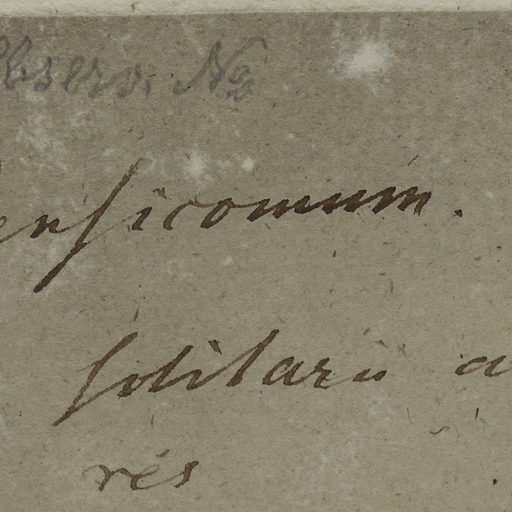 Observ. No
ensicomum.
solitarii a
res